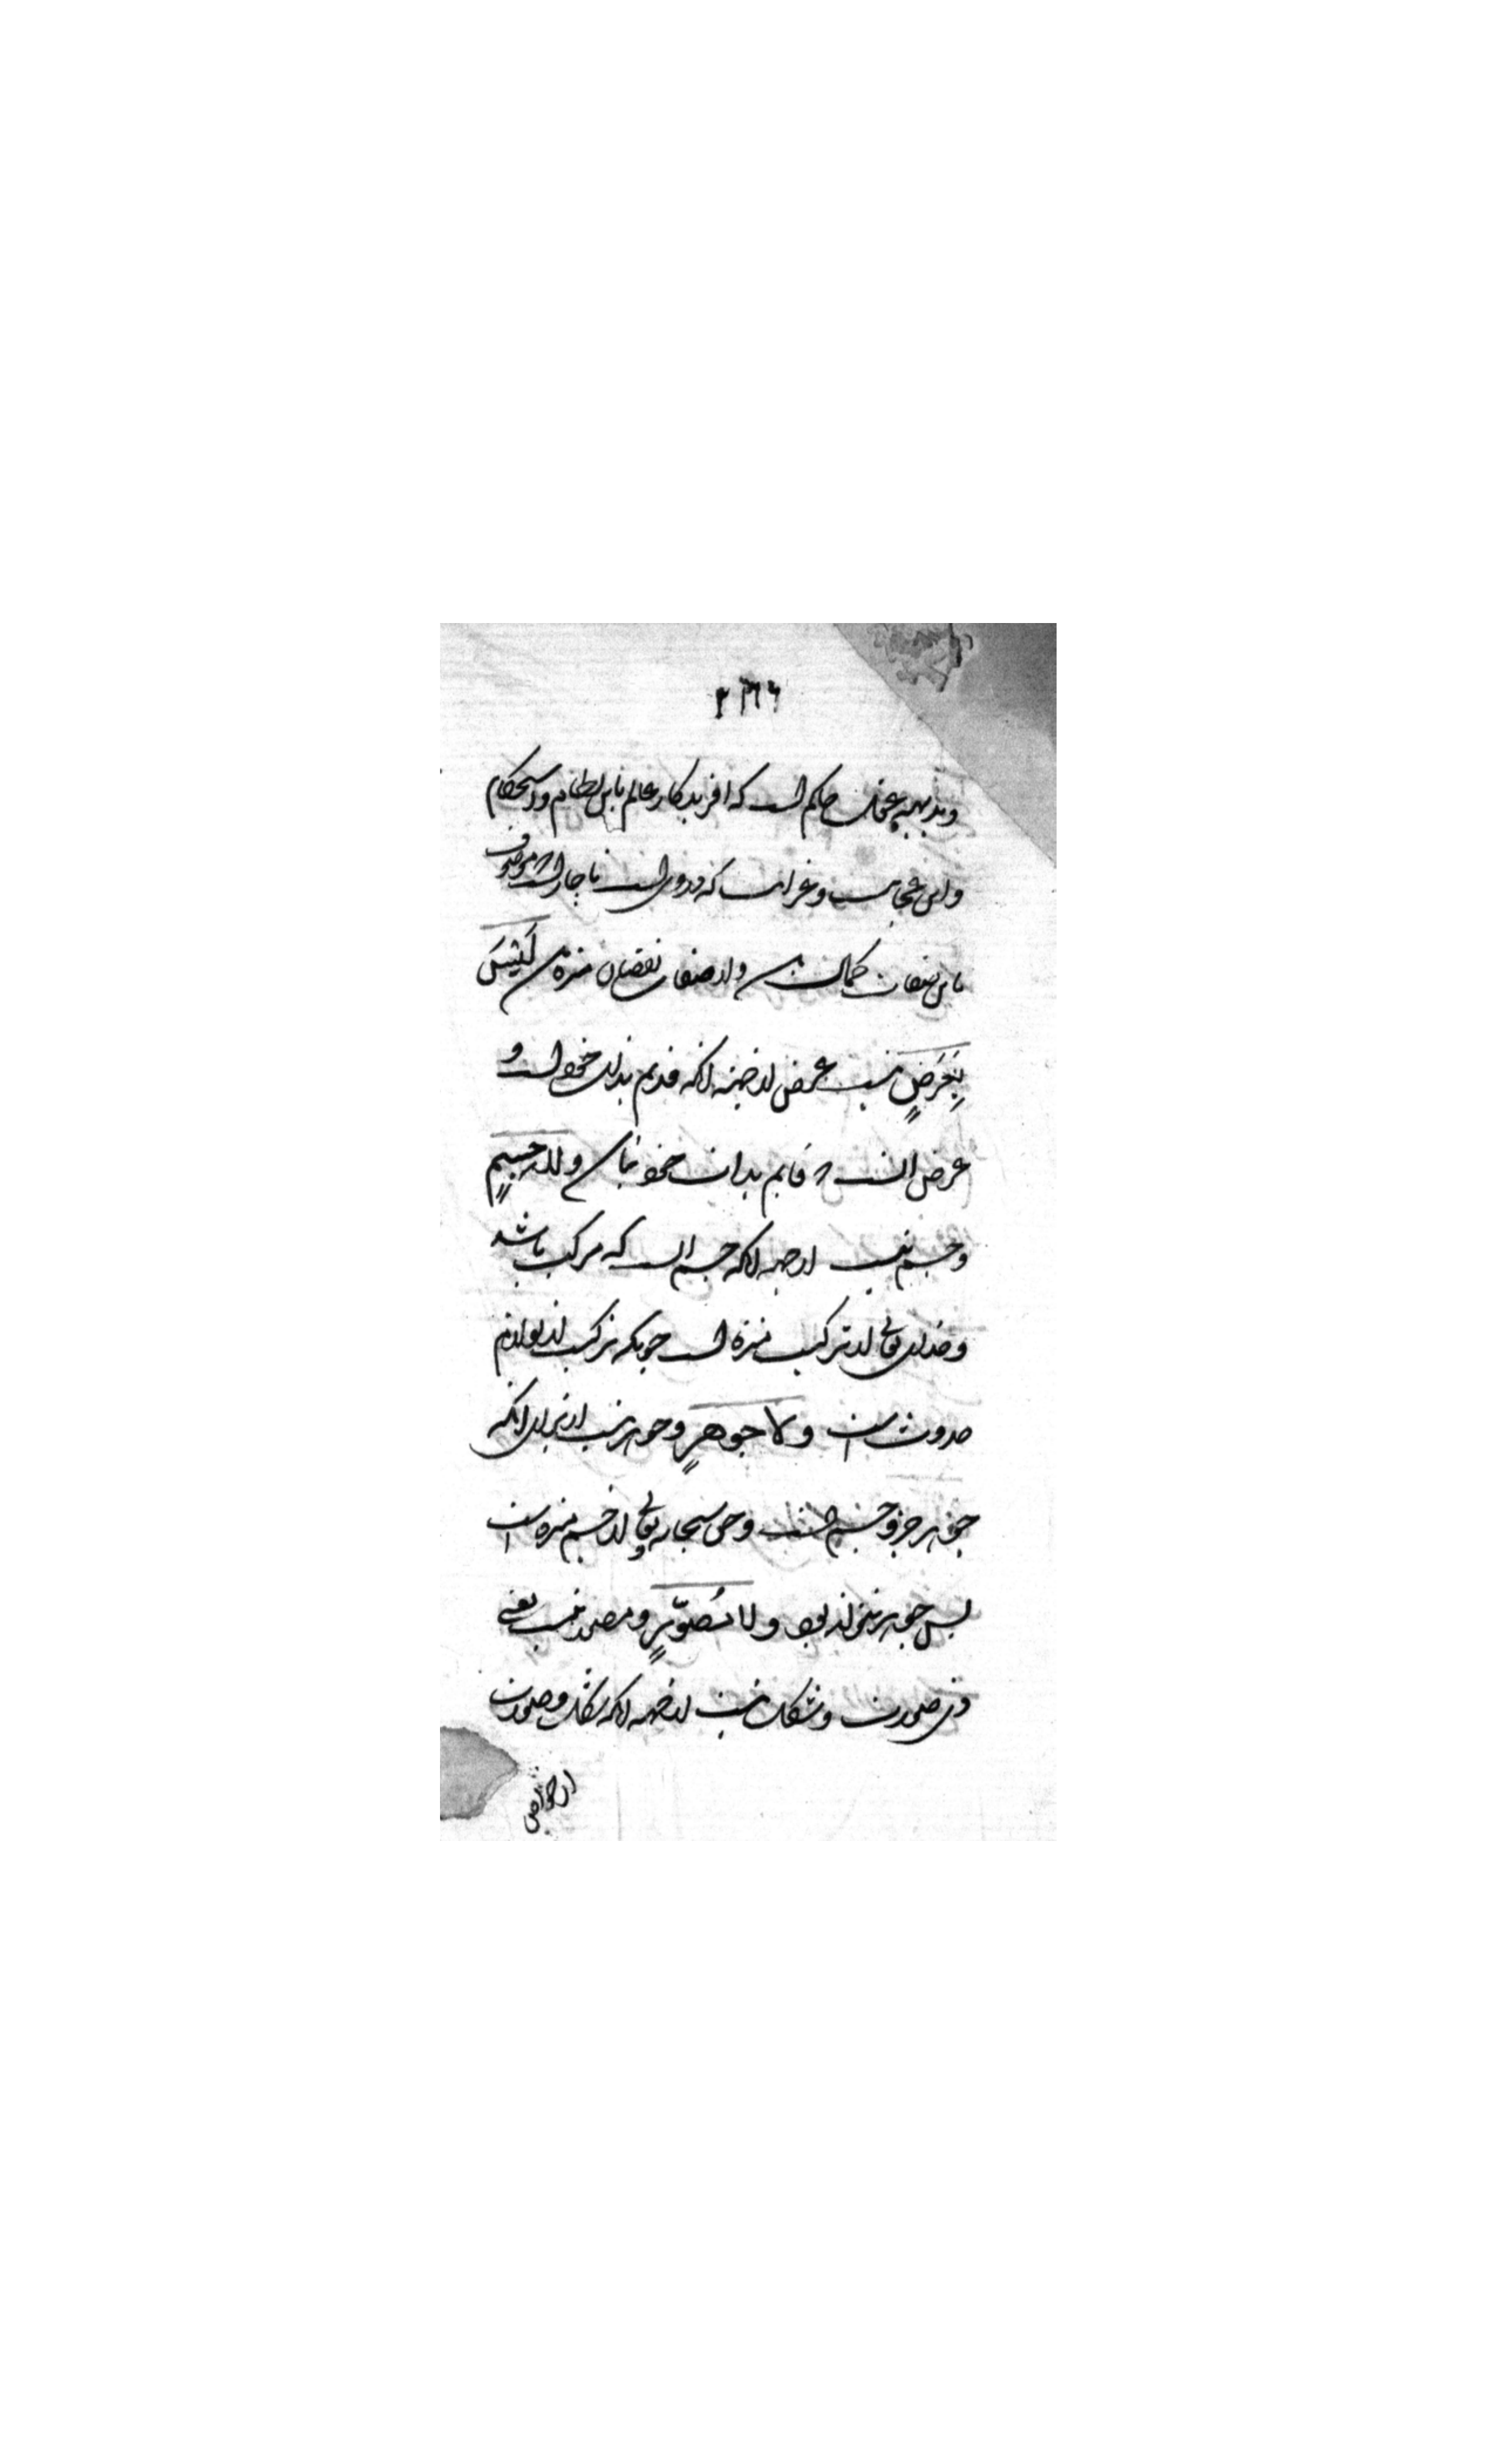 وبدیهه عقل حاکم است که افریدکار عالم باین نظام و استحکام
واین عجایب وغرایب که دروی است ناچار است که موصوف
باین صفات کمال باشد و از صفات نقصان منزه باشد لَیْسَ
بِعَرَضٍ نیست عرض از جهت انکه قدیم بذات خود است و
عرض انست که قایم بذات خود نباشد ولا جسمٍ
وجسم نیست از جهت انکه جسم انست که مرکب باشد
وخدای تعالی از ترکیب منزه است چونکه ترکیب از لوازم
حدوث است ولا جوهرٍ وجوهر نیست از برای انکه
جوهر جزو جسم است وحق سبحانه وتعالی از جسم منزه است
پس جوهر نتواند بود ولا مُصوّرٍ ومصور نیست یعنی
ذی صورت وشکل نیست از جهت انکه شکل وصورت
از خواص